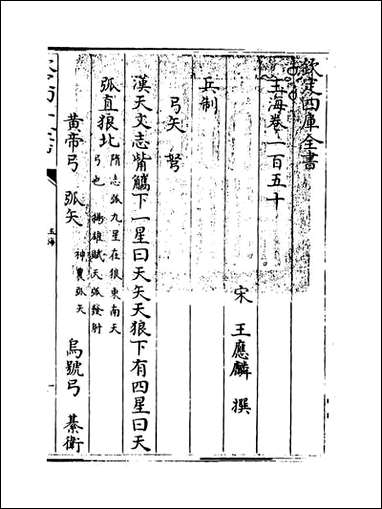 欽定四庫全書
玉海卷一百五十
宋 王應麟 撰
兵制
弓矢 弩
漢天文志觜觿下一星曰天矢天狼下有四星曰天
弧直狼北 隋志弧九星在狼東南天
弓也 揚雄賦天弧發射
黄帝弓 弧矢 神農弧矢 烏號弓 綦衛
玉海
一